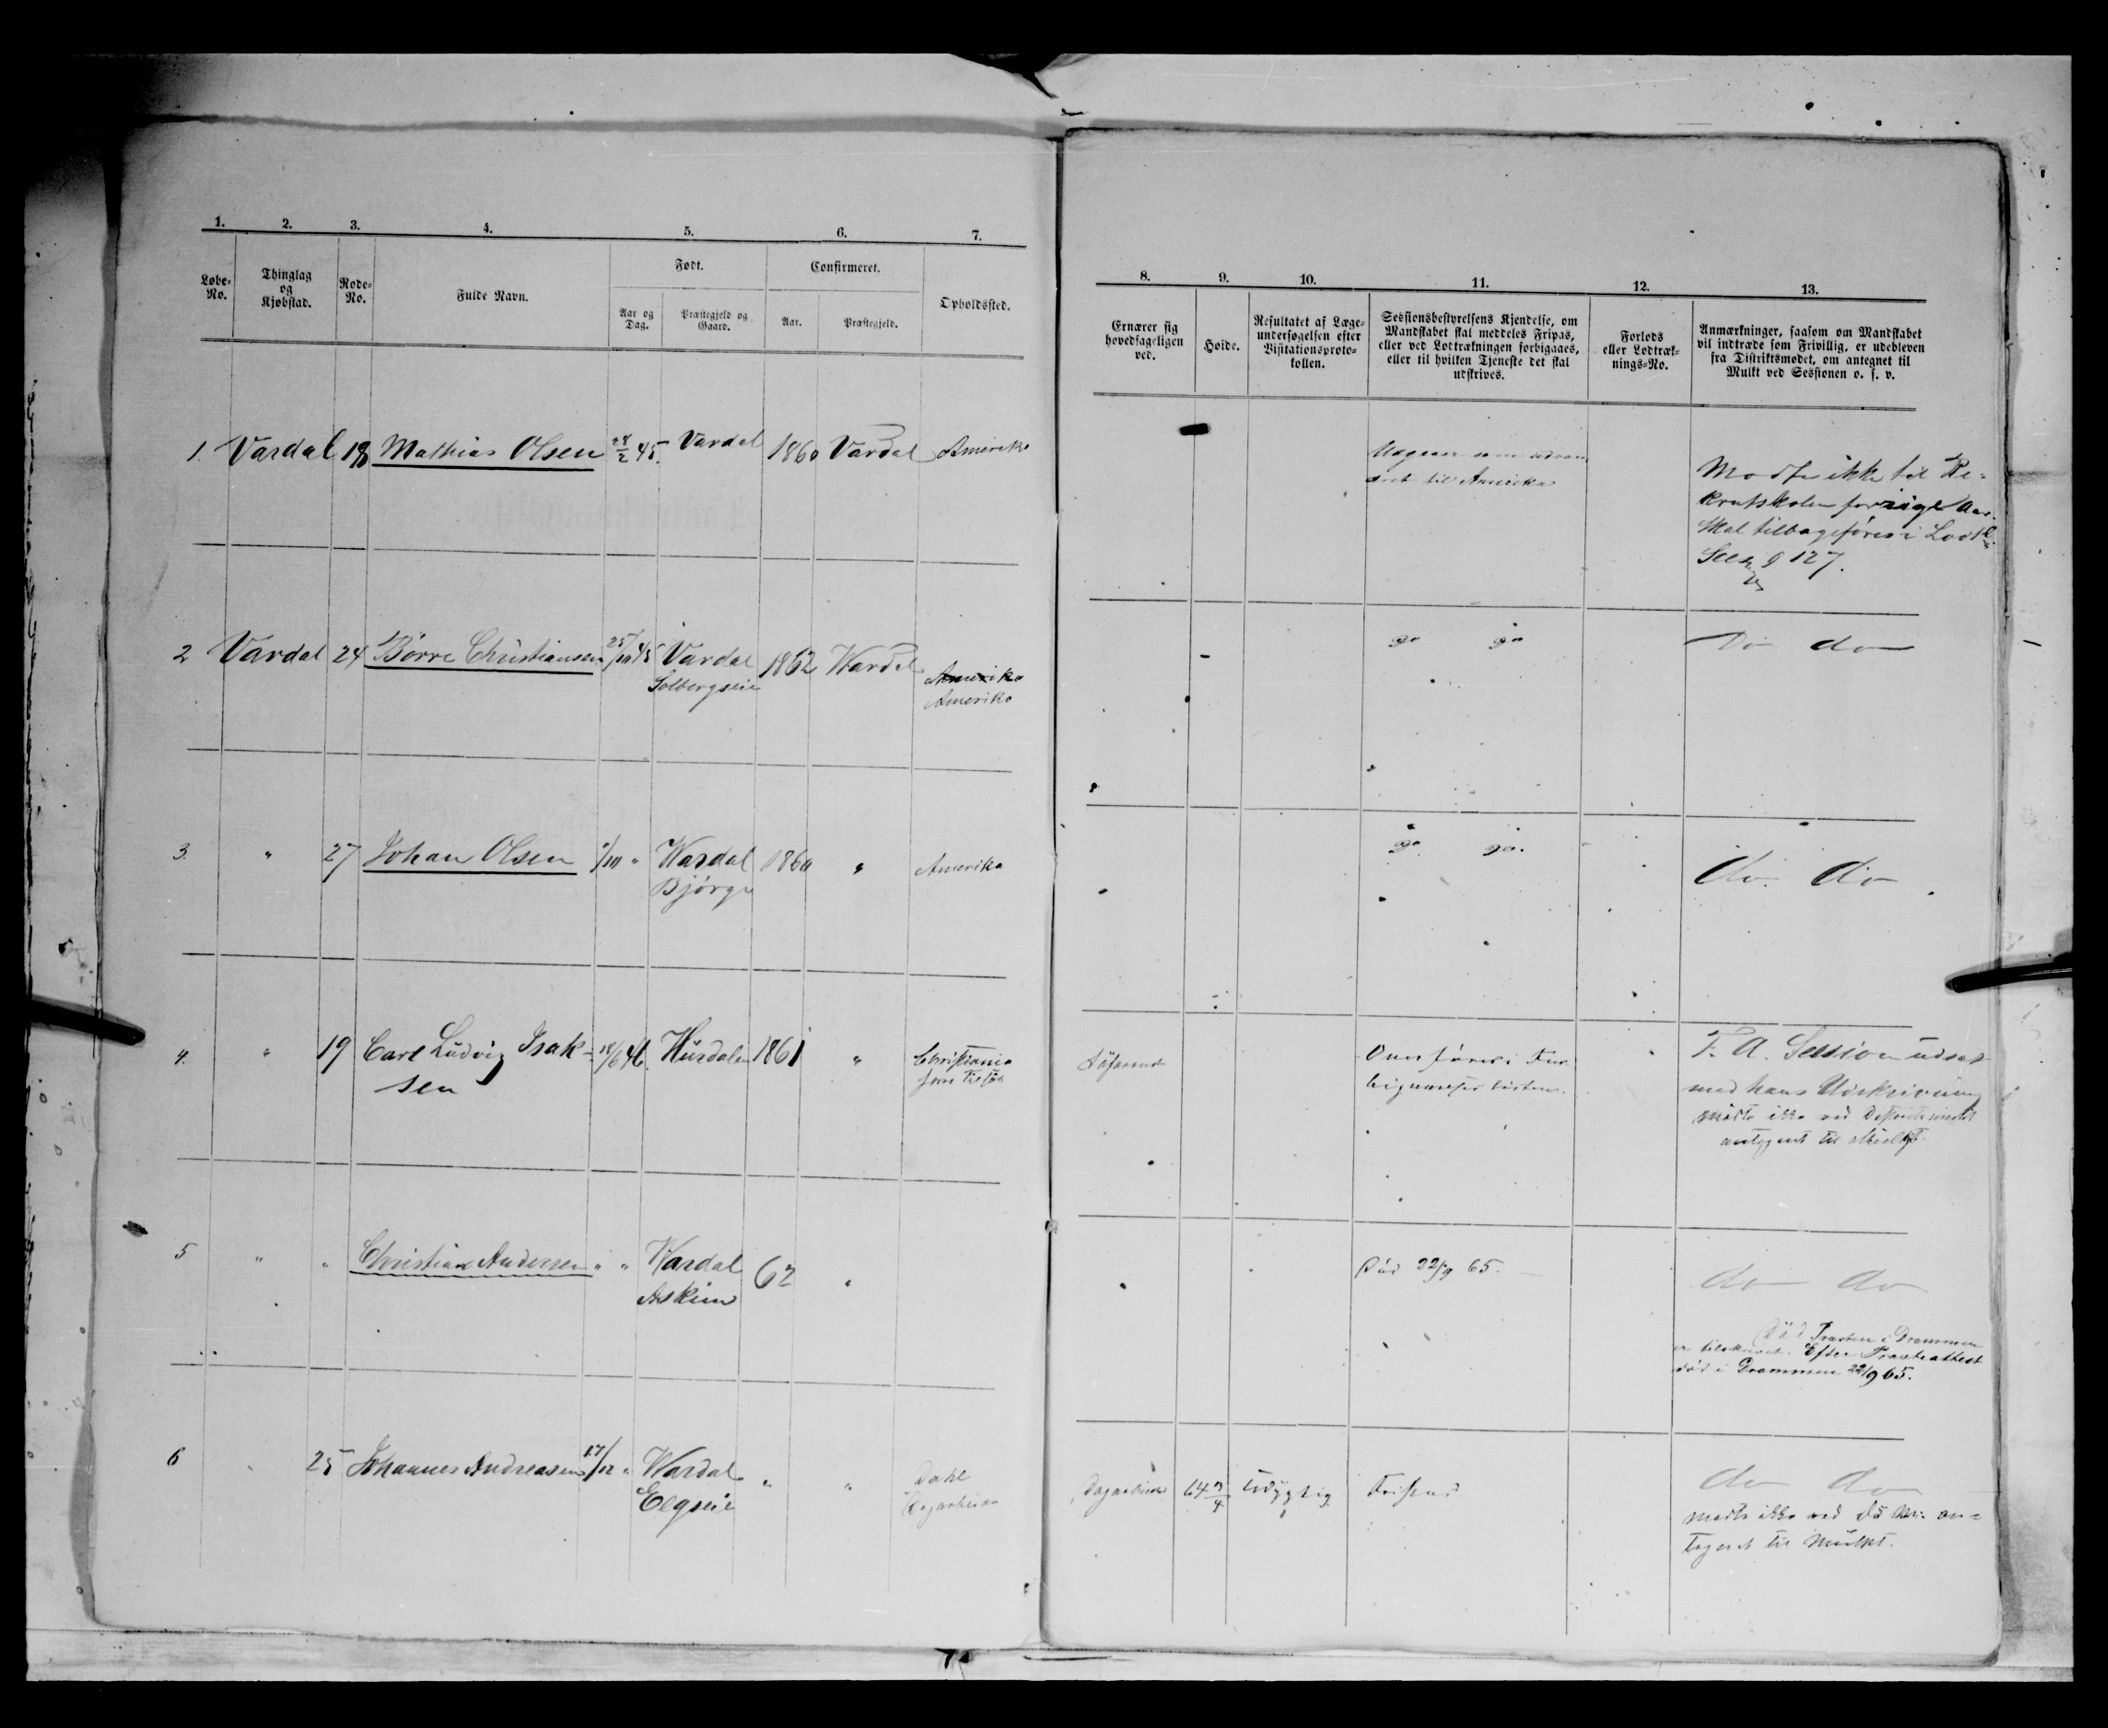 1.
2.
3.
4.
5.
6.
7.
Løbe-
No.
Thinglag
og
Kjøbstad.
Rode-
No.
Fulde Navn.
Født.
Aar og
Dag.
Præstegjeld og
Gaard.
Confirmeret.
Aar.
Præstegjeld.
Opholdssted.
8.
9.
10.
11.
12.
13.
Ernærer sig
hovedsageligen
ved.
Høide.
Resultatet af Læge-
undersøgelsen efter
Visitationsproto-
kollen.
Sessionsbestyrelsens Kjendelse, om
Mandskabet skal meddeles Fripas,
eller ved Lodtrækningen forbigaaes,
eller til hvilken Tjeneste det skal
udskrives.
Forlods
eller Lodtræk-
nings-No.
Anmærkninger, saasom om Mandskabet
vil indtræde som Frivillig, er udebleven
fra Distriktsmødet, om antegnet til
Mulkt ved Sessionen o. s. v.
1. Vardal 18 Mathias Olsen 28/2 45. Vardal 1860 Vardal Amerika
til Amerika
Modte ikke til Re-
krutskolen forrige Aar.
Skal tilbageføres i
127.
2 Vardal 24 Børre Christiansen 25/10 45 Vardal 1862 Wardal Amerika
Solbergseie
Amerika
do do
Do do
3. " 27 Johan Olsen /10 " Wardal 1860 " Amerika
Bjørge
do do.
do do
4. " 19 Carl Ludvig Isak- 18/6 46. Hurdalen 1861 " Christiania
sen
Søfarende
Overføres i
F. A. Session udsat
med hans Udskrivning
mødte ikke ved
antegnet til Mulkt.
5 " " Christian Andersen " " Wardal 62 "
Askim
Død 22/9 65.
do do
Død Præsten i Drammen
er tilskrevet. Efter Præsteattest
død i Drammen 22/9 65.
6 25 Johannes Andreasen 17/12 " Wardal " " Dahl
Elgseie
64 3/4 Udygtig
do do
mødte ikke ved an-
tegnet til Mulkt.